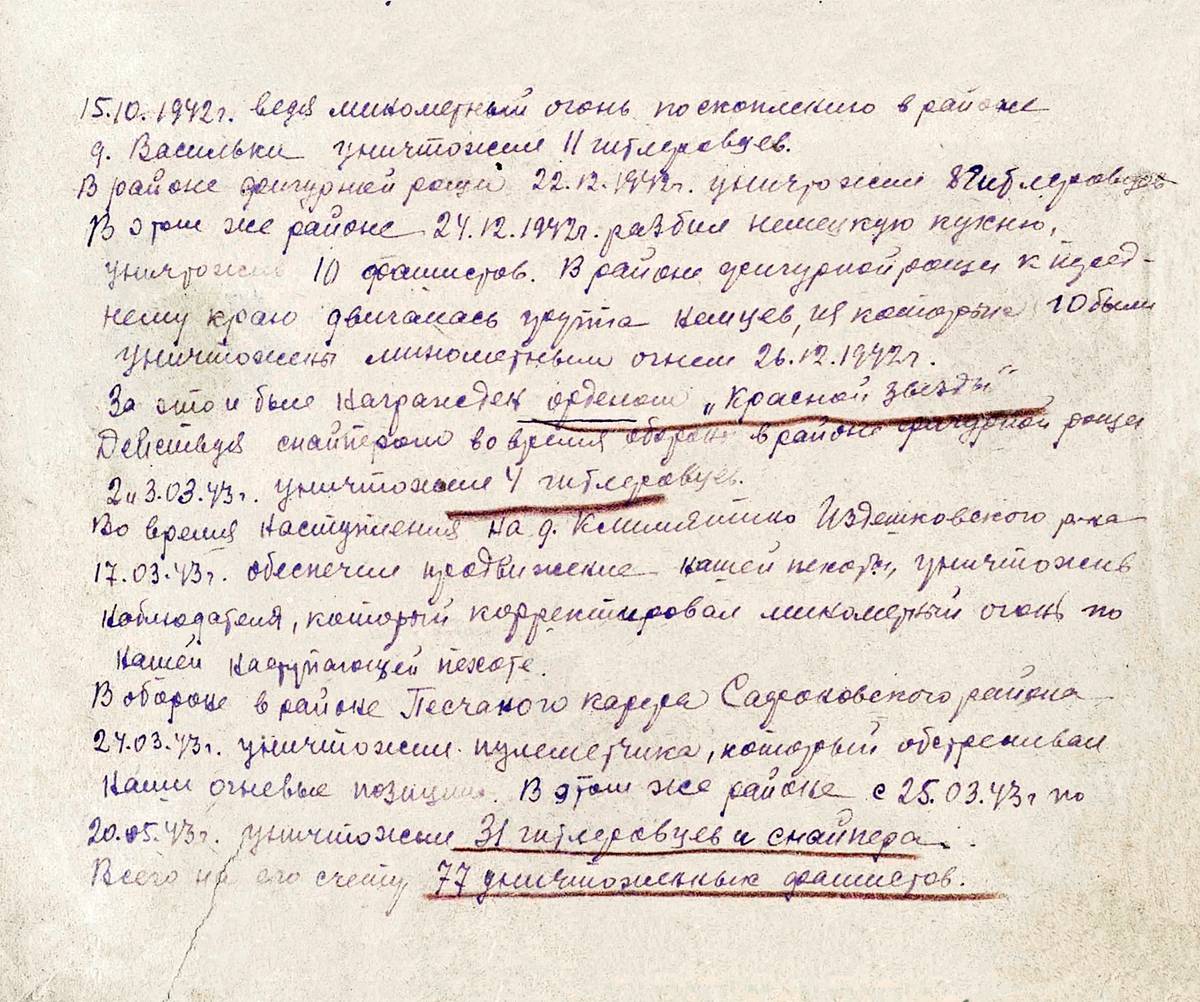 15.10.1942г. ведя минометный огонь по скоплению в районе
д. Васильки уничтожил 11 гитлеровцев.
В районе фигурной рощи 22.12.1942г. уничтожил 8 гитлеровцев
В этом же районе 24.12.1942г. разбил немецкую кухню,
уничтожив 10 фашистов. В районе фигурной рощи к перед-
нему краю двигалась группа немцев, из которых 10 были
уничтожены минометным огнем 26.12.1942г.
За это и был награжден орденом „Красной звезды"
Действуя снайпером во время обороны в районе фигурной рощи
2 и 3.03.43г. уничтожил 4 гитлеровцев.
Во время наступления на д. Климятино Издешковского р-на
17.03.43г. обеспечил продвижение нашей пехоты, уничтожив
наблюдателя, который корректировал минометный огонь по
нашей наступающей пехоте.
В обороне в районе Песчаного карьера Сафоновского района
24.03.43г. уничтожил пулеметчика, который обстреливал
наши огневые позиции. В этом же районе с 25.03.43г по
20.05.43г. уничтожил 31 гитлеровцев и снайпера.
Всего на его счету 77 уничтоженных фашистов.